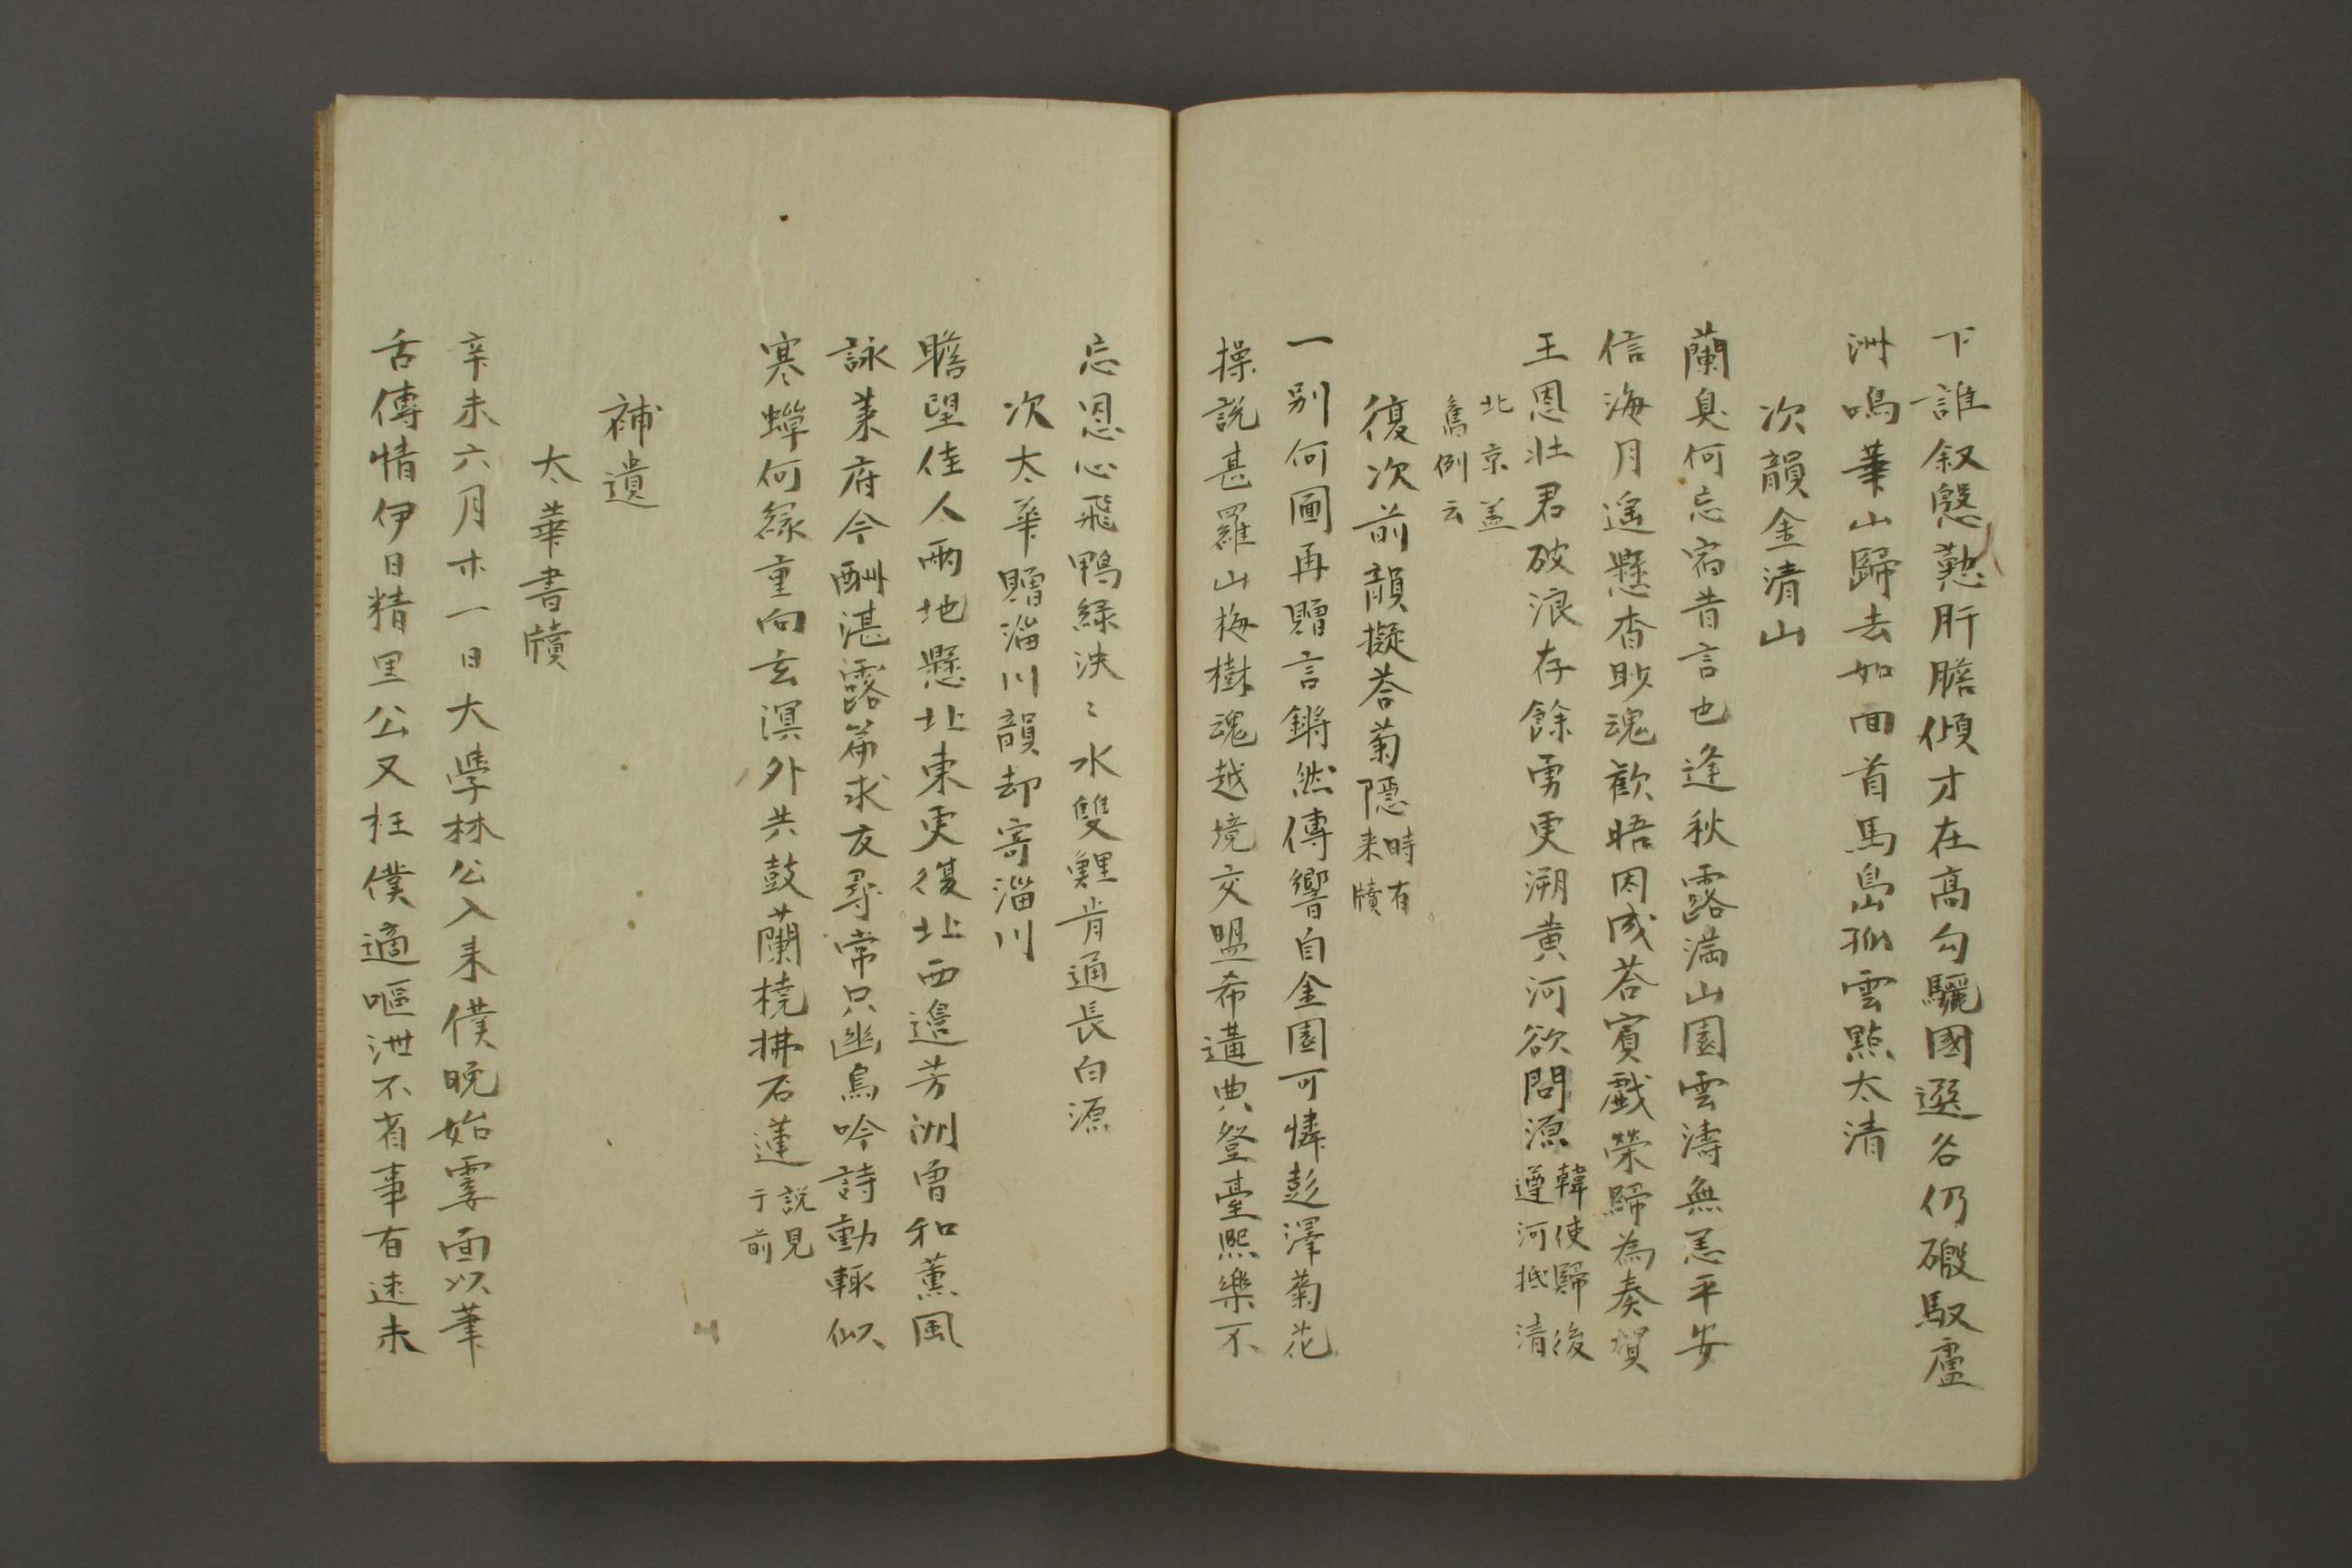 下誰叙慇懃肝膽傾才在高勾驪國選谷仍礮馭盧
洲鳴華山歸去如回首馬島孤雲點太清
次韻金清山
蘭臭何忘宿昔言也逢秋露滿山園雲濤無恙平安
信海月遥懸杳眇魂歡晤因成荅賓戯榮歸為奏賀
王恩壮君破浪存餘勇更溯黄河欲問源韓使歸後
遵河抵清
北京盖
舊例云
復次前韻擬荅菊隱時有
来牘
一别何圖再贈言鏘然傳響自金園可憐彭澤菊花
操説甚羅山梅樹魂越境交盟希遘典登臺熙樂不
忘恩心飛鴨緑泱〻水雙鯉肯通長白源
次太華贈淄川韻却寄淄川
瞻望佳人兩地懸北東更復北西邉芳洲曽和薫風
詠莱府今酬湛露篇求友尋常只幽鳥吟詩動輒似
寒蟬何縁重向玄溟外共鼓蘭橈拂石蓮説見
于前
補遺
太華書牘
辛未六月廿一日大學林公入来僕晩始霎面以筆
舌傳情伊日精里公又枉僕適嘔泄不省事有速未